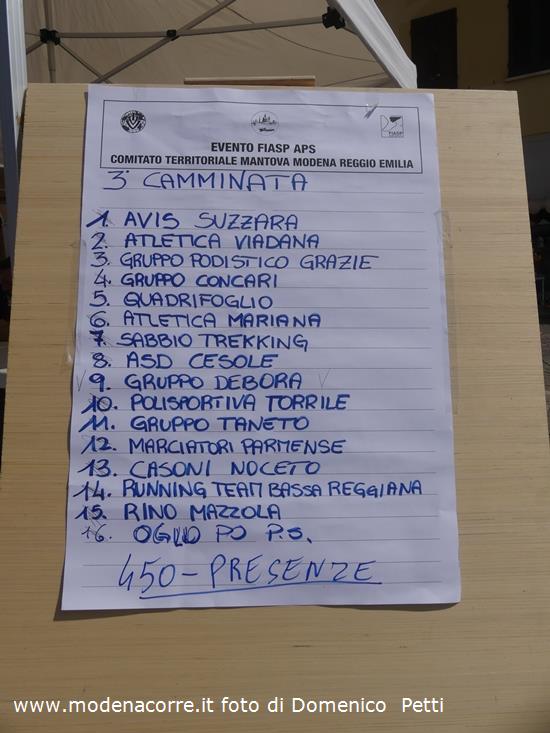 FIASP
EVENTO FIASP APS
COMITATO TERRITORIALE MANTOVA MODENA REGGIO EMILIA
3° CAMMINATA
1. AVIS SUZZARA
2. ATLETICA VIADANA
3. GRUPPO PODISTICO GRAZIE
4. GRUPPO CONCARI
5. QUADRIFOGLIO
6. ATLETICA MARIANA
7. SABBIO TREKKING
8. ASD CESOLE
9. GRUPPO DEBORA
10. POLISPORTIVA TORRILE
11. GRUPPO TANETO
12. MARCIATORI PARMENSE
13. CASONI NOCETO
14. RUNNING TEAM BASSA REGGIANA
15. RINO MAZZOLA
16. OGLIO PO P.S.
450 - PRESENZE
www.modenacorre.it foto di Domenico Petti